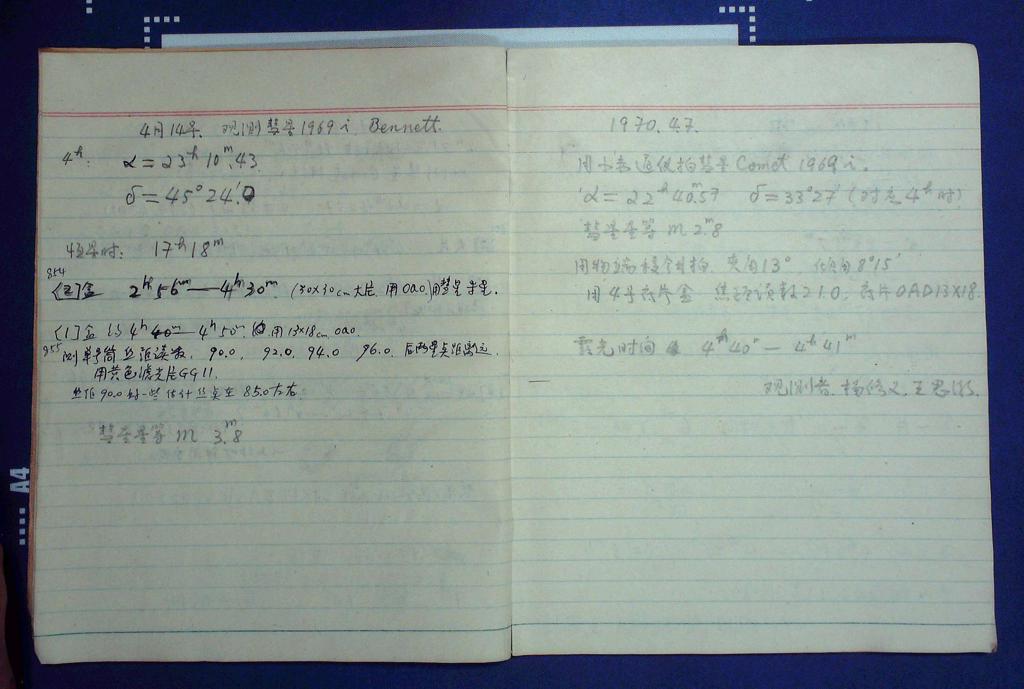 4月14号. 观测彗星1969 i, Bennett.
4ʰ: α=23ʰ10ᵐ.43
δ=45°24′.0
恒星时: 17ʰ18ᵐ
854
[2]盒 2ʰ56ᵐ—4ʰ30ᵐ. (30×30cm大片. 用OaO.) 用彗星导星.
[1]盒 4ʰ40ᵐ—4ʰ50ᵐ. 用13×18cm OaO
855 测单筒丝距读数, 90.0, 92.0, 94.0 96.0. 后两星点距离远.
用黄色滤光片GG11.
丝距90.0好一些估计丝点在 85.0左右.
彗星星等 m 3ᵐ.8
1970.4.7.
用 拍彗星 Comet 1969 i.
α=22ʰ40ᵐ.57 δ=33°27′ (对应4ʰ时)
彗星星等 m 2ᵐ.8
用物端棱镜拍. 夹角13°, 倾角8°15′
用4号底片盒 丝距读数21.0. 底片OAD13×18.
露光时间 4ʰ40ᵐ — 4ʰ41ᵐ
观测者. 杨修义. 王思
A4